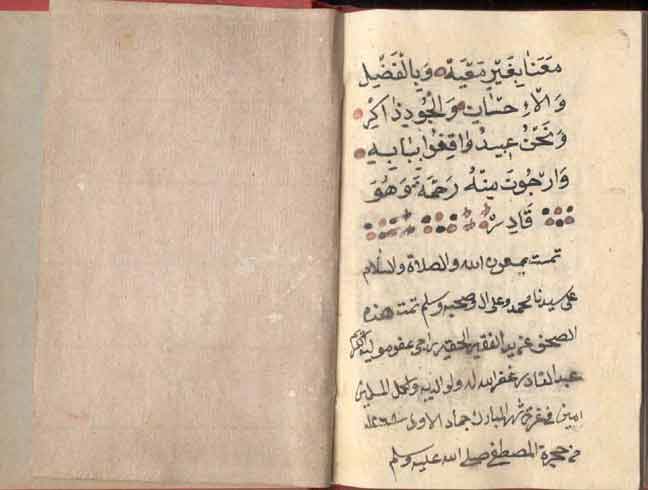 مَعَنَا بِغَيْرِ مَعِيَّة وَبِالْفَضْلِ
وَالْاِحْسَانِ وَالْجُودِ ذَاكِرُ
وَنَحْنُ عَبِيدٌ وَاقِفُوا بِبَابِهِ
وَارْجُوتَ مِنْهُ رَحْمَةً وَهُوَ
قَادِرُ
تمت بعون الله والصلاة والسلام
على سيدنا محمد وعلى ال وصحبه وسلم تمت هذه
الفقير الحقير راجى عفو مولاه
عبد القادر غفر الله له ولوالديه ولكل المسلمين
امين فى غرة شهر المبارك جماد الاول
هجرة المصطفى صلى الله عليه وسلم